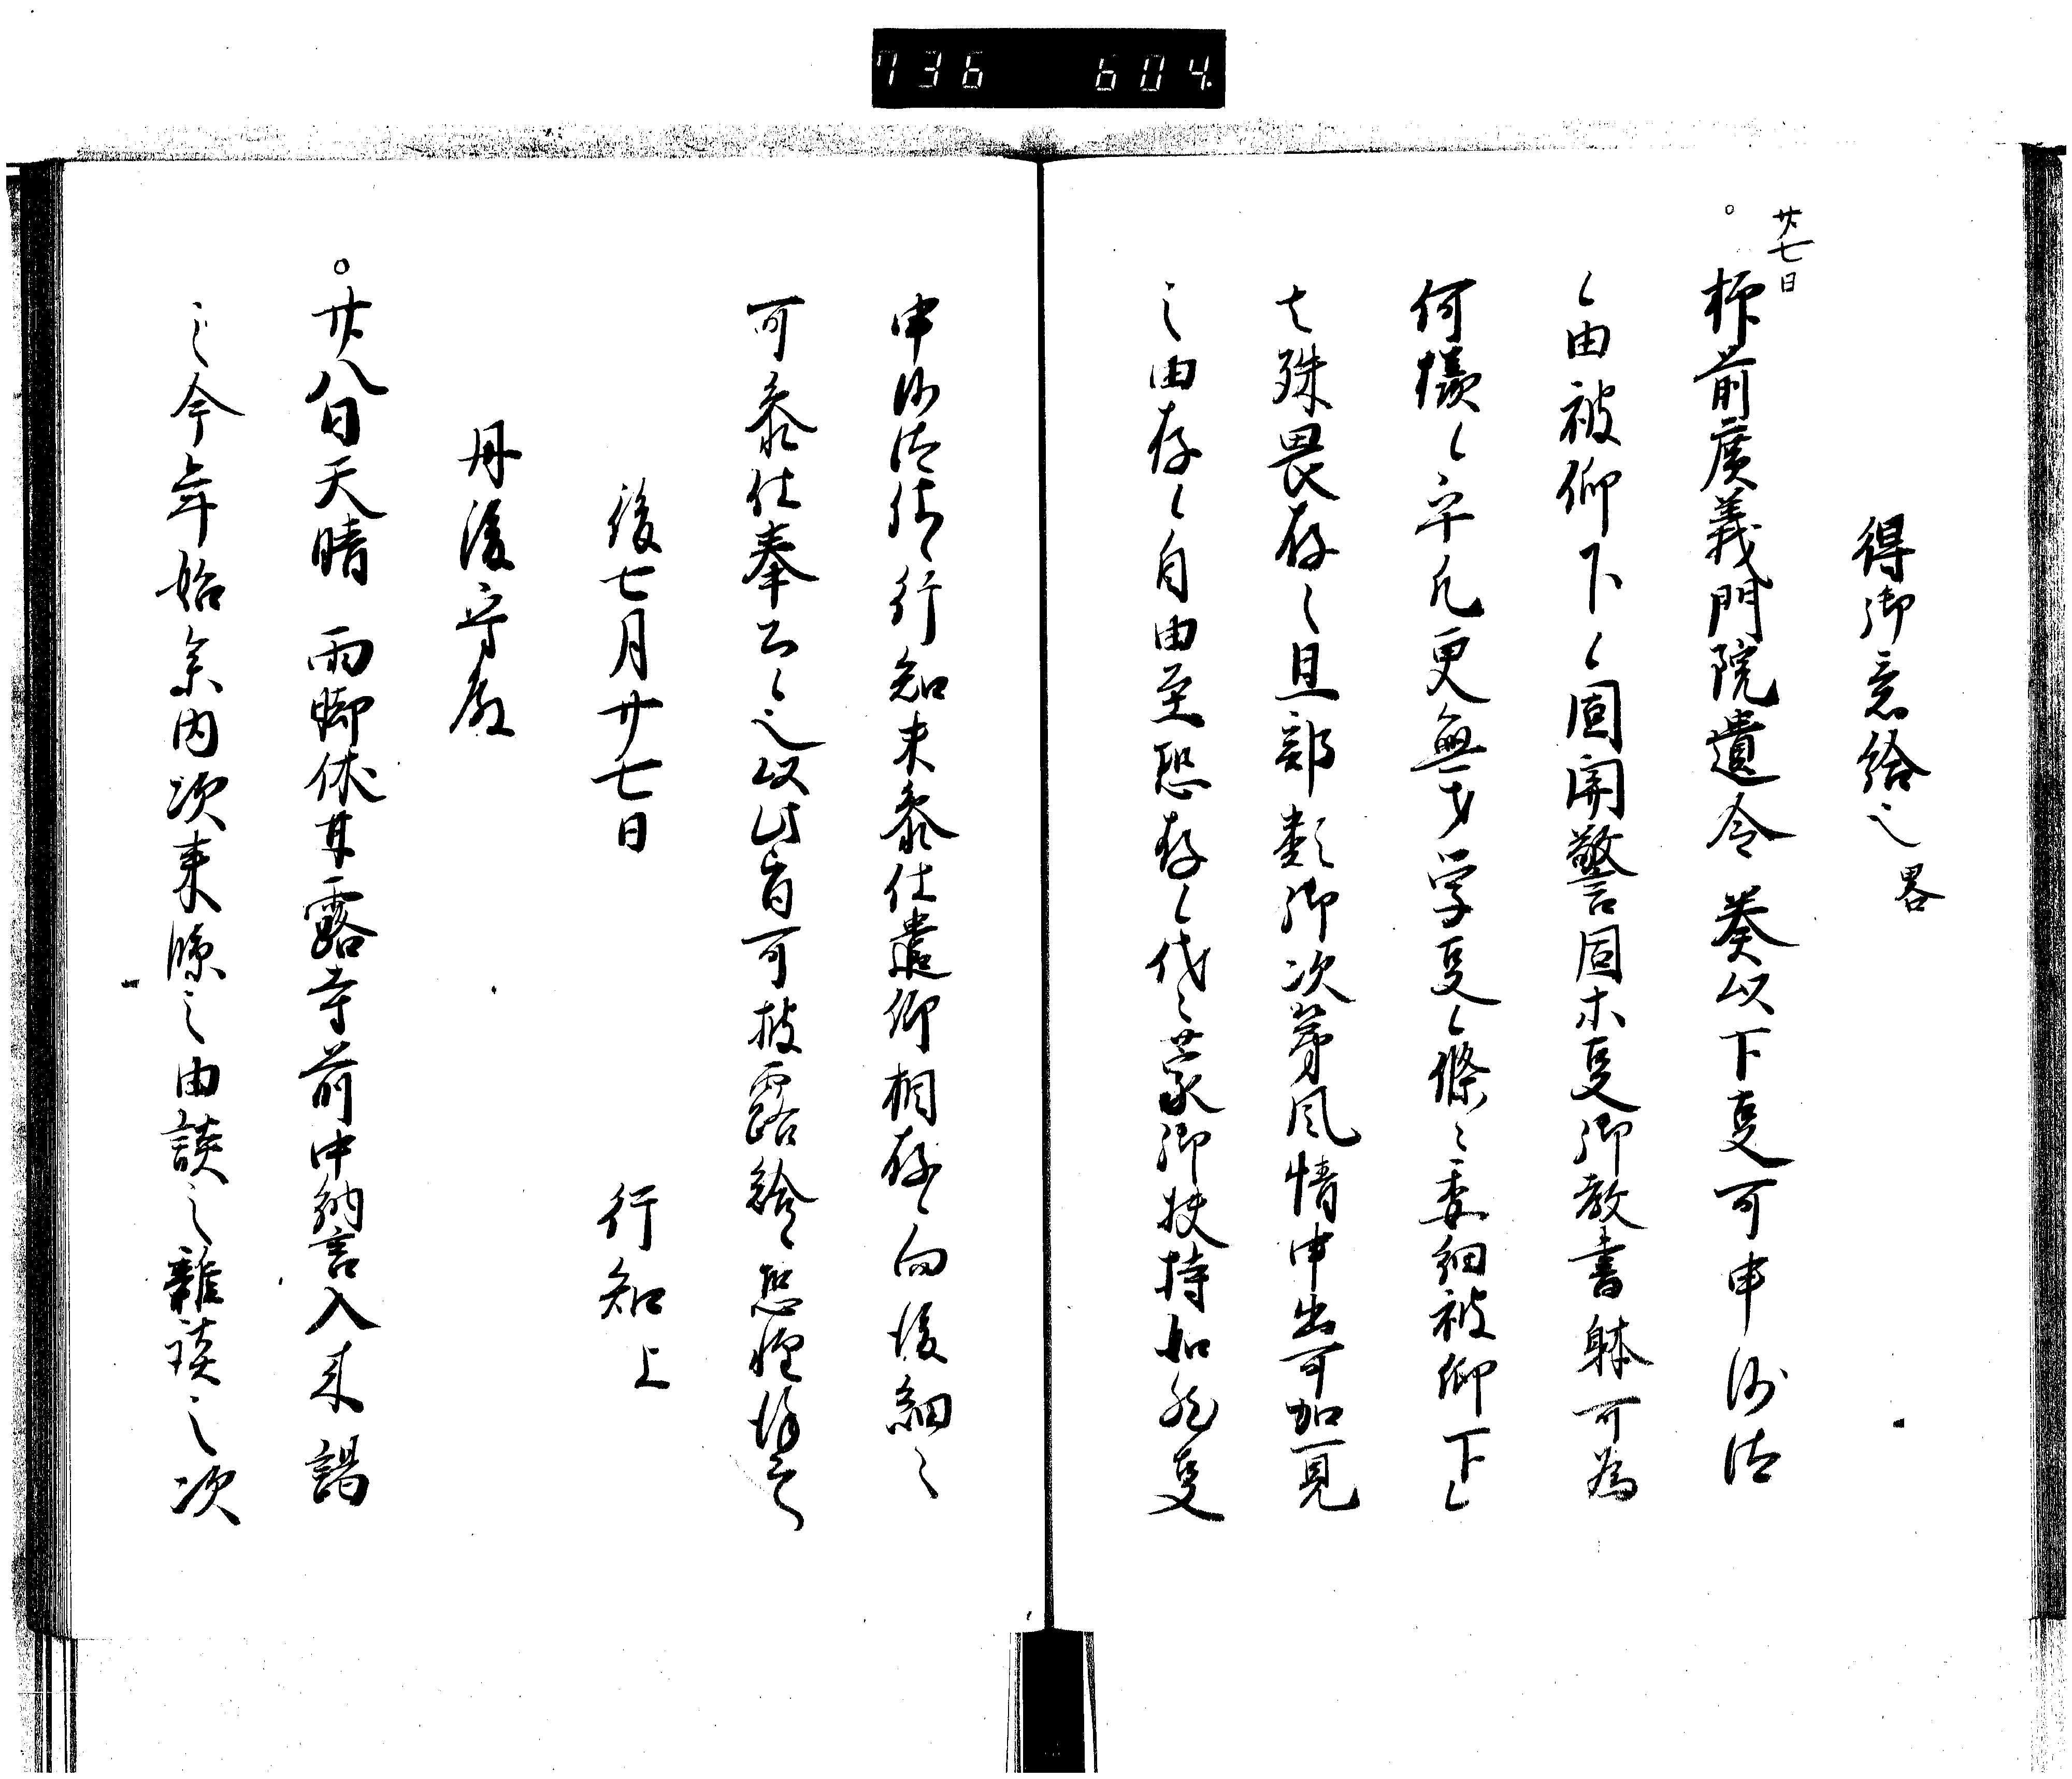 736 604
得御意給之畧
廿七日
抑前廣義門院遺令奏以下事可申沙汰
之由被仰下之固関警固木事御教書躰可為
何様之乎凡更無才学事之條々委細被仰下之
者殊畏存之且部類御次第風情申出可加一見
之由存之自由至恐存之代々蒙御扶持如然事
申沙汰候行知未参仕遣仰相存向後細々
可参仕奉公之以此旨可披露給恐惶謹言
後七月廿七日 行知上
丹後守殿
廿八日天晴雨脚休甘露寺前中納言入来謁
之今年始参内次来臨之由談之雑談之次